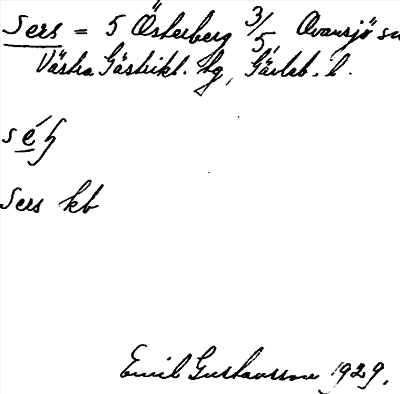 Sers = 5 Österberg 3/5, Ovansjö sn
Västra Gästrikl. hg, Gävleb. l.
Sers kb
Emil Gustavsson 1929.